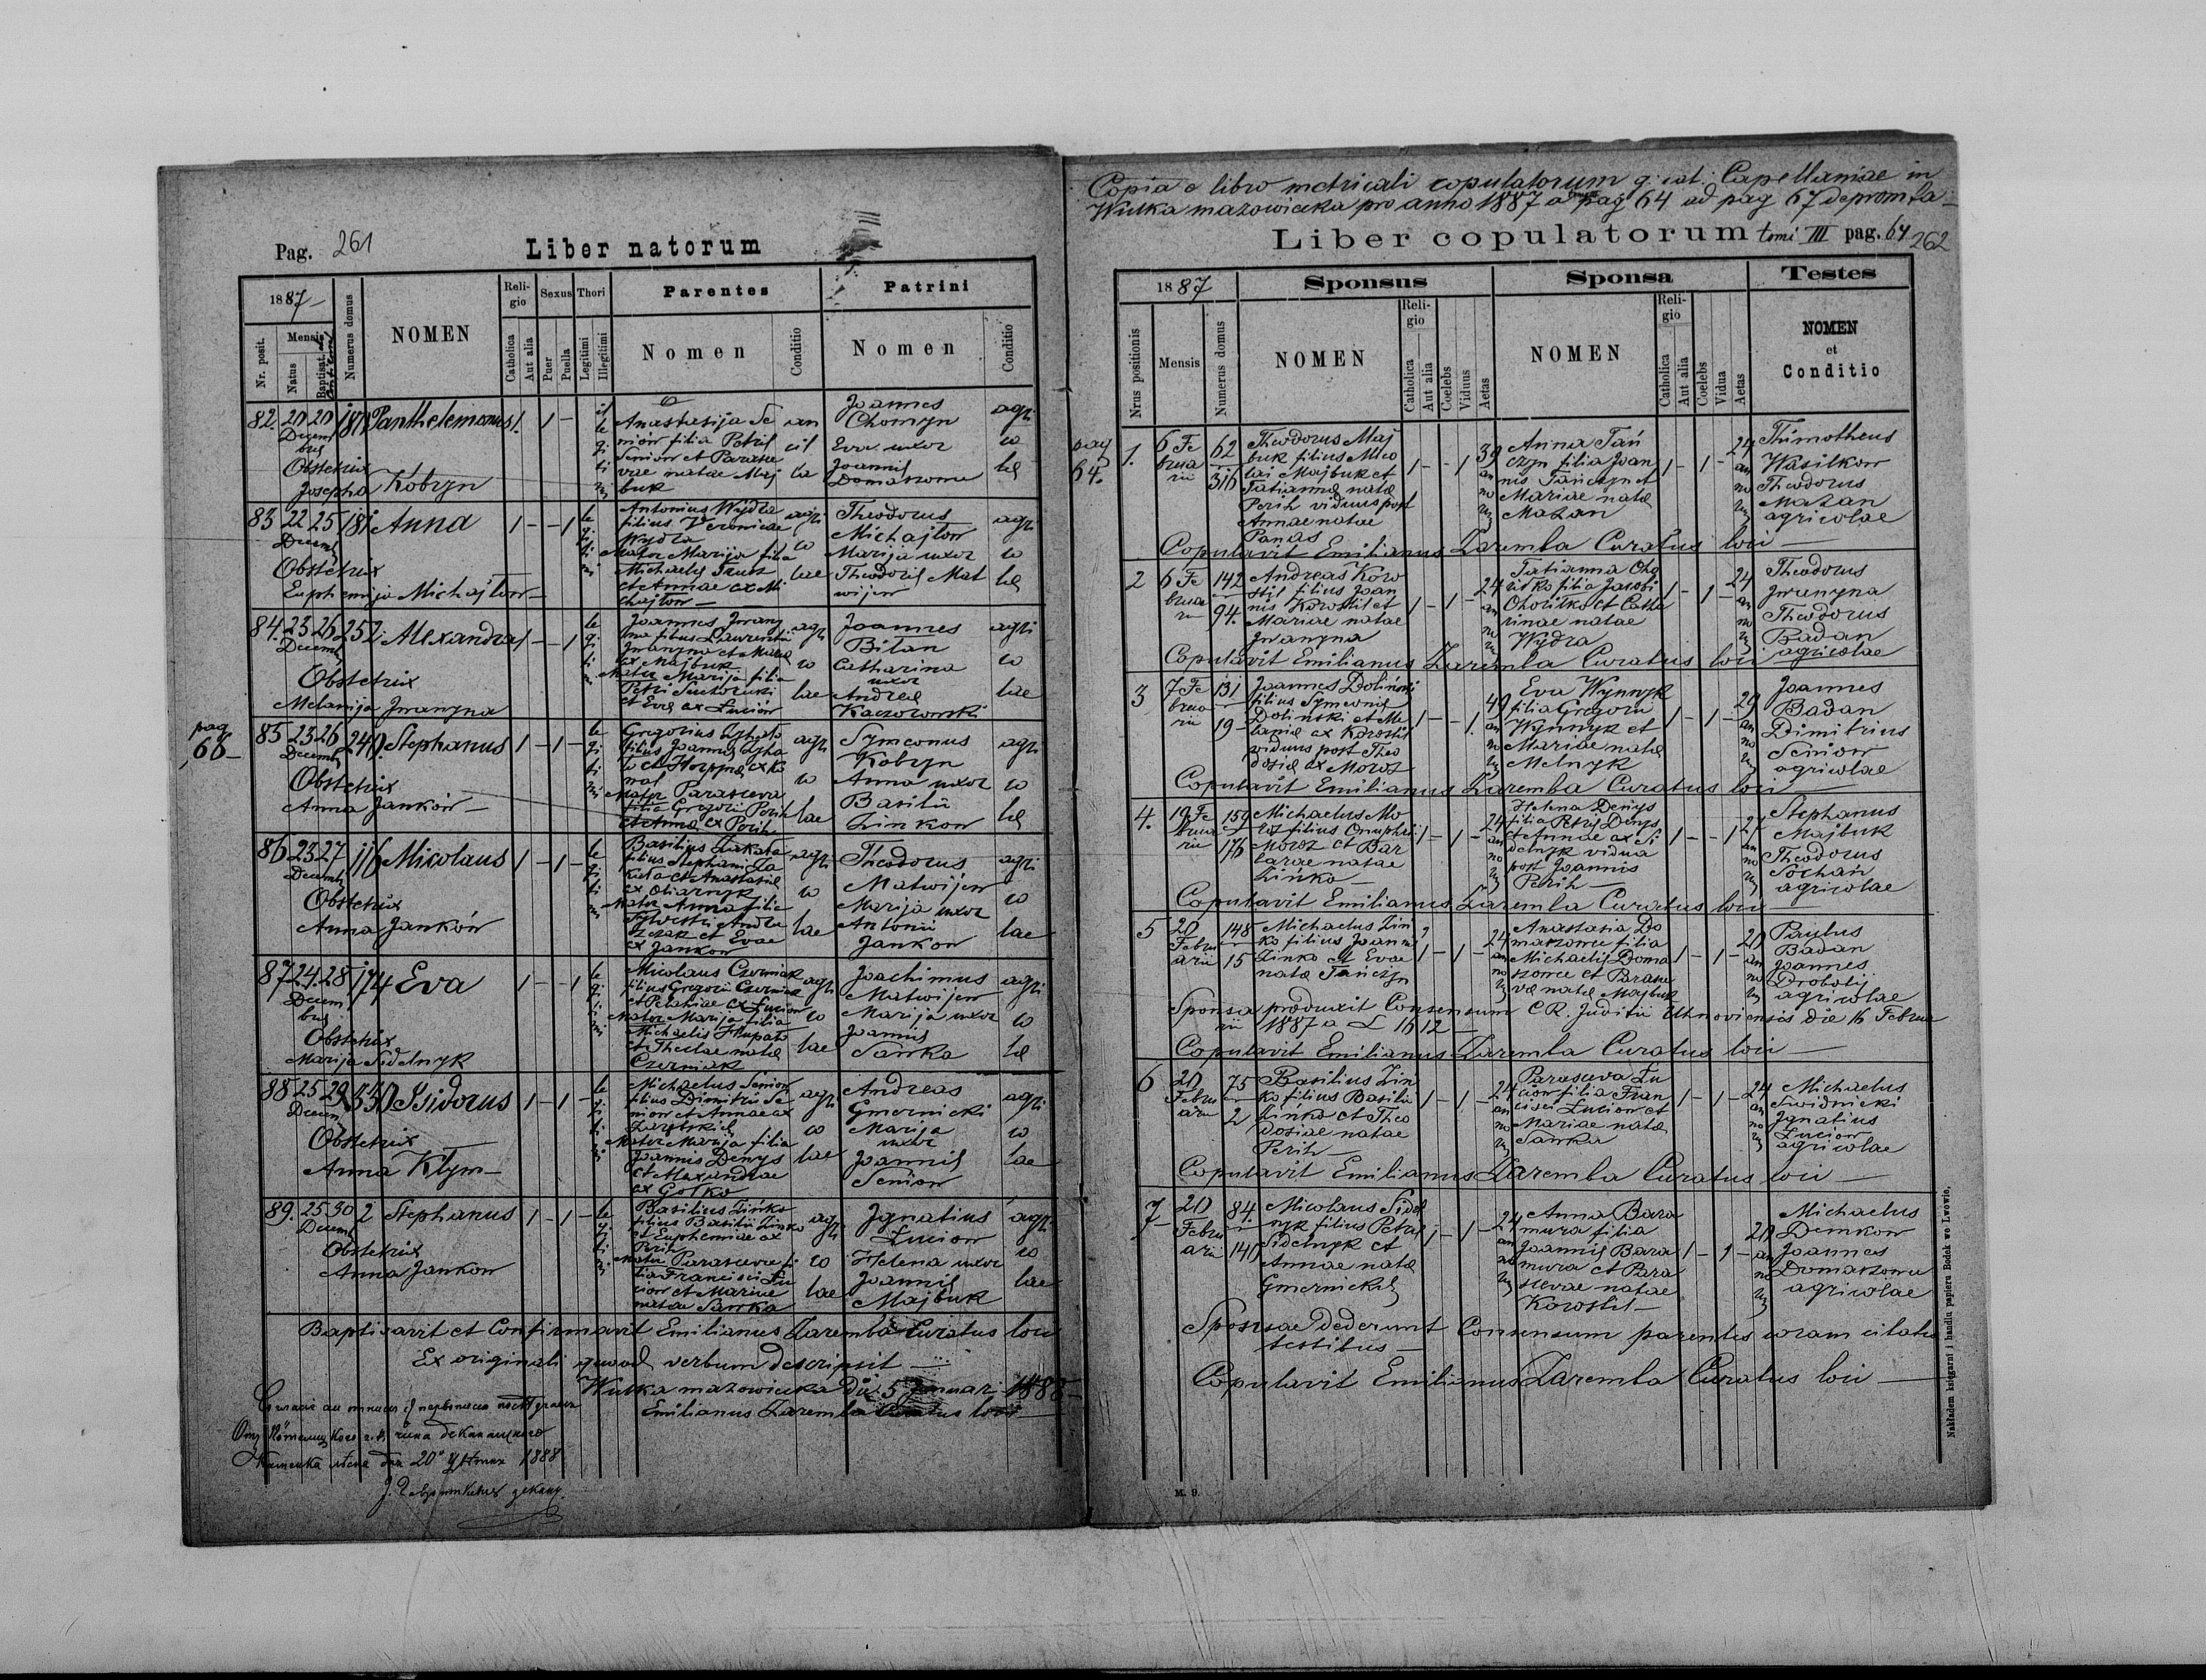 Pag. 261
Liber natorum
1887
Mensis
Nr. posit.
Natus
Baptisat. et
Numerus domus
NOMEN
Religio
Catholica
Aut alia
Sexus
Puer
Puella
Thori
Legitimi
Illegitimi
Parentes
Nomen
Conditio
Patrini
Nomen
Conditio
82 20 20 Decembris Panthelemonus 1 1 –
illegitimi
Anastasija Senior filia Petri
Senior et Parascevae natae Majbuk
ancilla
Joannes Chomyn
Eva uxor
Joannis Domaszowec
agricolae
Obstetrix
Josepha Kobryn
83 22 25 Decemb 181 Anna 1 – – 1
legitimi
Antonius Wydra
filius Veronicae
Wydra
Mater Marija filia
Michaelis
et Annae ex Michajlow
agricolae
Theodorus
Michajlow
Marija uxor
Theodoris Matwijew
agricolae
Obstetrix
Euphemija Michajlow
84. 23 26 Decemb 252 Alexandra 1 – – 1
legitimi
Joannes Iwanyna filius Laurentii
Iwanyna et Mariae
ex Majbuk
Mater Marija filia
Petri
et Evae ex Luciow
agricolae
Joannes
Bilan
Catharina
uxor
Andreae
Kaczorowski
agricolae
Obstetrix
Melanija Iwanyna
pag
66
85 23 26 Decemb 240. Stephanus 1 – 1 –
legitimi
Gregorius
filius Joannis
Mater Parasceva
filia Gregorii Perih
et Annae ex Perih
agricolae
Symeonus
Kobryn
Anna uxor
Basilii
Zinkow
agricolae
Obstetrix
Anna Jankow
86 23 27 Decemb 116 Micolaus 1 – 1 –
legitimi
Basilius Zakala
filius Stephani
et Anastasiae
Mater Anna filia
et Evae
ex Jankow
agricolae
Theodorus
Matwijew
Marija uxor
Antonii
Jankow
agricolae
Obstetrix
Anna Jankow
87 24. 28 Decembris 174 Eva 1 – – 1
legitimi
Micolaus Czerniak
filius Gregorii Czerniak
et Pelahiae ex Luciow
Mater Marija filia
Michaelis
et Theclae natae
Czerniak
agricolae
Joachimus
Matwijew
Marija uxor
Joannis
Sawka
agricolae
Obstetrix
Marija Sidelnyk
88 25 29 Decemb 330 Isidorus 1 – 1 –
legitimi
Michaelus Seniow
filius Dimitrii Seniow et Annae ex
Mater Marija filia
Joannis Denys
et Alexandrae
ex Gotko
agricolae
Andreas
Gmernicki
Marija
uxor
Joannis
Seniow
agricolae
Obstetrix
Anna Klym
89. 25 30 Decemb 2 Stephanus 1 – 1 –
legitimi
Basilius Zinko
filius Basilii Zinko
et Euphemiae ex
Perih
Mater Parasceva filia Francisci Lucion et Mariae
natae Sawka
agricolae
Ignatius
Lucion
Helena uxor
Joannis
Majbuk
agricolae
Obstetrix
Anna Jankow
Baptisavit et Confirmavit Emilianus Zaremba Curatus loci
Ex originali quoad verbum descripsit
Wulka mazowiecka die 5 Januari 1888
Emilianus Zaremba Curatus loci
1888
Copia e libro metricali copulatorum g: cat: Capellaniae in
Wulka mazowiecka pro anno 1887 a pag 64 ad pag 67 depromta
Liber copulatorum tomi III pag. 64
262
1887
Nrus positionis
Mensis
Numerus domus
Sponsus
NOMEN
Religio
Catholica
Aut alia
Coelebs
Viduus
Aetas
Sponsa
NOMEN
Religio
Catholica
Aut alia
Coelebs
Vidua
Aetas
Testes
NOMEN
et
Conditio
pag
64.
1. 6 Februarii 62 316
Theodorus Majbuk filius Nicolai Majbuk et
Tatiannae natae
Perih viduus post
Annae natae
Panas
1 – – 1 39 annorum
Anna Tańczyn filia Joannis Tańczyn et
Mariae natae
Mazan
1 – 1 – 24 annorum
Thimotheus
Wasilkow
Theodorus
Mazan
agricolae
Copulavit Emilianus Zaremba Curatus loci
2 6 Februarii 142 94.
Andreas Korostil filius Joannis Korostil et
Mariae natae
Iwanyna
1 – 1 – 24 annorum
Tatianna Ohorilko filia Jacobi
Ohorilko et Catharinae natae
Wydra
1 – 1 – 24 annorum
Theodorus
Iwanyna
Theodorus
Badan
agricolae
Copulavit Emilianus Zaremba Curatus loci
3 7 Februarii 131 19
Joannes Dolinski
filius Symeonis
Dolinski et Melaniae ex Korostil
viduus post Theodosiae ex Moroz
1 – – 1. 49 annorum
Eva Wynnyk
filia Gregorii
Wynnyk et
Mariae natae
Melnyk
1 – 1 – 29 annorum
Joannes
Badan
Dimitrius
Seniow
agricolae
Copulavit Emilianus Zaremba Curatus loci
4. 19 Februarii 159 176
Michaelus Moroz filius Onuphrii
Moroz et Barbarae natae
Zinko
1 – 1 – 24 annorum
Helena Denys
filia Petri Denys
et Annae ex Sidelnyk vidua
post Joannis
Perih
1 – – 1 24 annorum
Stephanus
Majbuk
Theodorus
Sochan
agricolae
Copulavit Emilianus Zaremba Curatus loci
5 20 Februarii 148 15
Michaelus Zinko filius Joannis
Zinko et Evae
natae Tańczyn
1 – 1 – 24 annorum
Anastasia Domaszowec filia
Michaelis Domaszowec et Parascevae natae Majbuk
1 – 1 – 20 annorum
Paulus
Badan
Joannes
Drobotij
agricolae
Sponsa produxit Consensum C.R. Juditii Uhnoviensis die 16 Februarii 1887 a L 1612
Copulavit Emilianus Zaremba Curatus loci
6 20 Februarii 75 2
Basilius Zinko filius Basilii
Zinko et Theodosiae natae
Perih
1 – 1 – 24 annorum
Parasceva Lucion filia Francisci Lucion et
Mariae natae
Sawka
1 – 1 – 24 annorum
Michaelus
Swidnicki
Ignatius
Lucion
agricolae
Copulavit Emilianus Zaremba Curatus loci
7 20 Februarii 84. 140
Micolaus Sidelnyk filius Petri
Sidelnyk et
Annae natae
Gmernickich
1 – 1 – 24 annorum
Anna Baramura filia
Joannis Baramura et Parascevae natae
Korostil
1 – 1 – 20 annorum
Michaelus
Demkow
Joannes
Domaszowec
agricolae
Sponsae dederunt Consensum parentes coram citatis
testibus
Copulavit Emilianus Zaremba Curatus loci
M. 9.
Nakładem księgarni i handlu papieru Bodek we Lwowie.